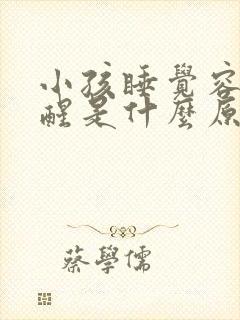 小孩睡覺容
醒是什麼原
蔡學儒